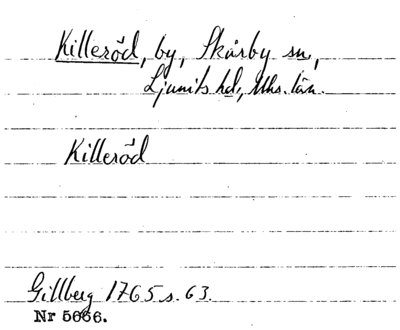 Killeröd, by, Skårby sn,
Ljunits hd, Mhs. län.
Killeröd
Gillberg 1765 s. 63.
Nr 5666.